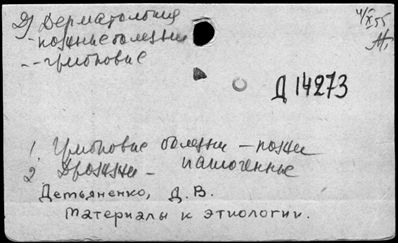 2) Дерматология
- кожные болезни
- - грибковые
4/X 55
Д 14273
1. Грибковые болезни - кожи
2. Дрожжи - патогенные
Детьяненко, Д.В.
Материалы к этиологии.